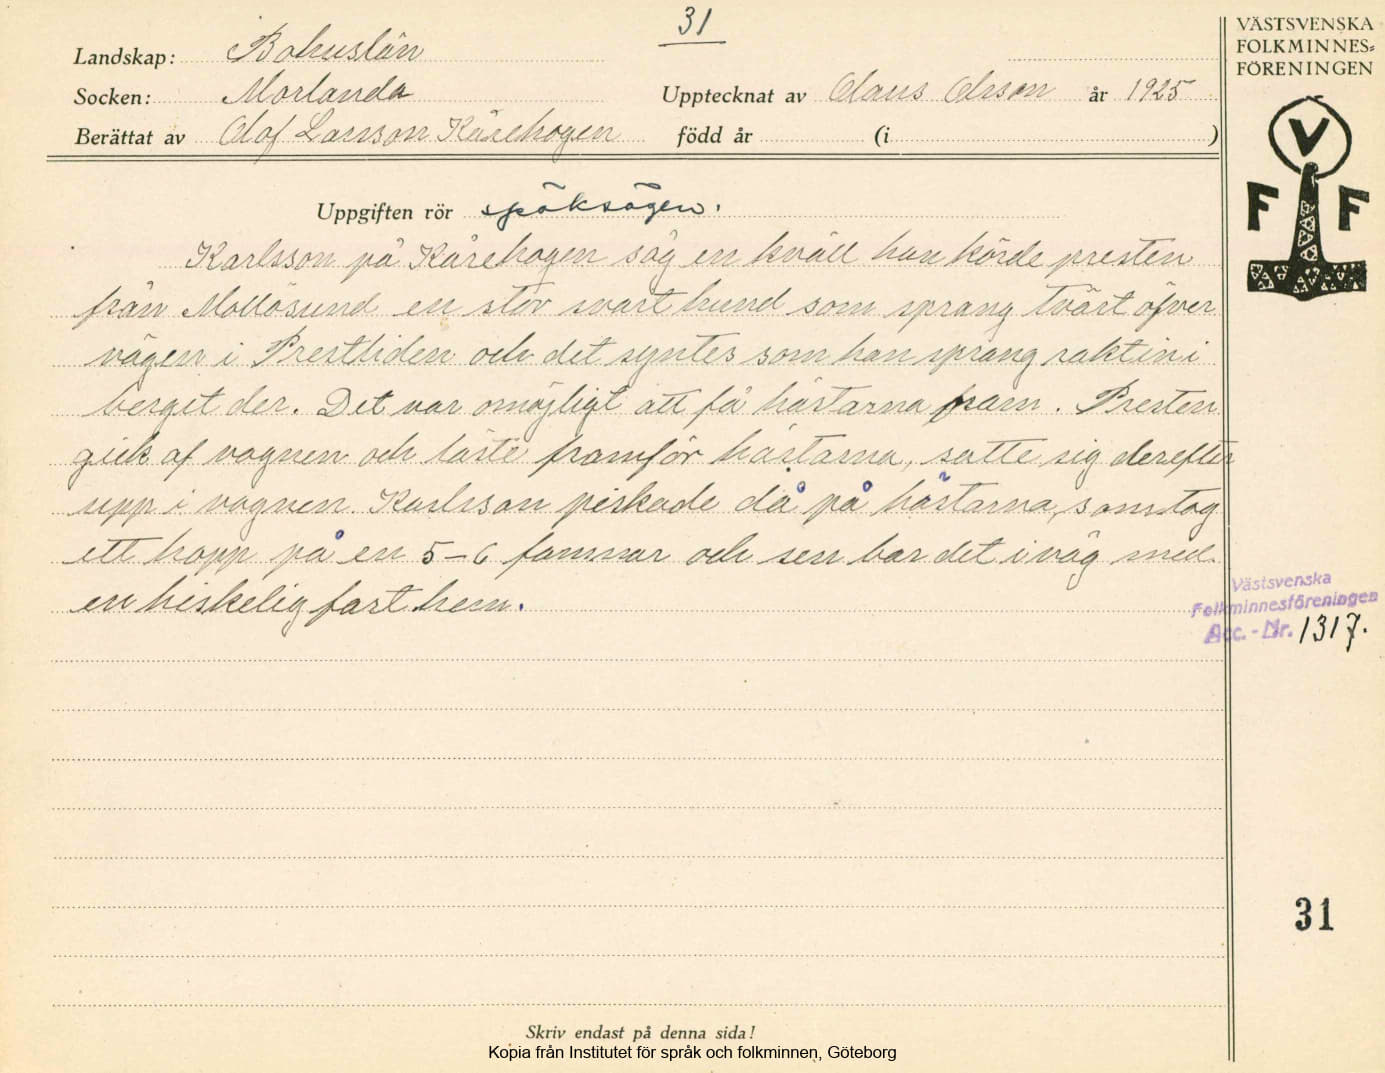 31
VÄSTSVENSKA
FOLKMINNES-
FÖRENINGEN
Landskap: Bohuslän
Socken: Morlanda
Upptecknat av Claus Olsson år 1925
Berättat av Olof Larsson Kårehogen född år (i )
V
F F
Uppgiften rör spöksägen.
Karlsson på Kårehogen såg en kväll han körde presten
från Mollösund en stor svart hund som sprang tvärt öfver
vägen i Prestliden och det syntes som han sprang rakt in i
berget der. Det var omöjligt att få hästarna fram. Presten
gick af vagnen och läste framför hästarna, satte sig derefter
upp i vagnen. Karlsson piskade då på hästarna, som tog
ett hopp på en 5-6 famnar och sen bar det i väg med
en hiskelig fart hem.
Västsvenska
Folkminnesföreningen
Acc.-Nr. 1317.
31
Skriv endast på denna sida!
Kopia från Institutet för språk och folkminnen, Göteborg